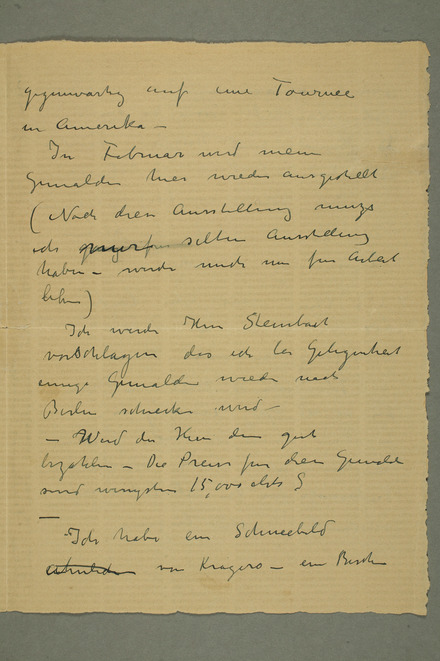 gegenwartig auf eine Tournee
in Amerika –
In Februar wird meine
Gemalden hier wieder ausgestelt
(Nach diese Ausstellung
ich selten Ausstellung
haben – werde mich nur fur Arbeit
leben)
Ich werde Herr Steinbart
vorschlagen das ich bei Gelegenheit
einige Gemalden wieder nach
Berlin schicken wird –
– Wird der Herr dem gut
bezahlen – Die Preise fur diese Gemalde
sind wenigsten 15,000
–
Ich habe ein Schneebild
von Kragerø – ein